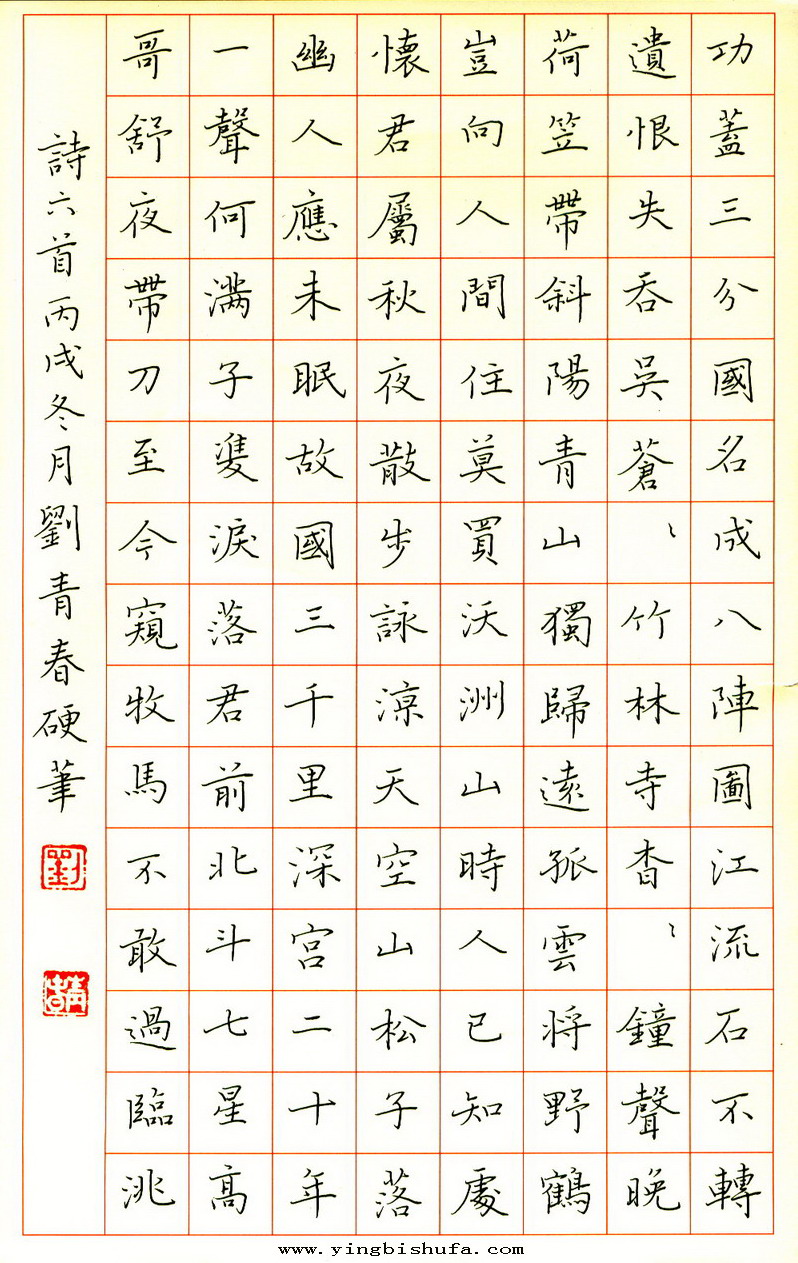 功蓋三分國名成八陣圖江流石不轉
遺恨失吞吳蒼〻竹林寺杳〻鐘聲晚
荷笠帶斜陽青山獨歸遠孤雲將野鶴
豈向人間住莫買沃洲山時人已知處
懷君屬秋夜散步詠涼天空山松子落
幽人應未眠故國三千里深宮二十年
一聲何滿子雙淚落君前北斗七星高
哥舒夜帶刀至今窺牧馬不敢過臨洮
詩六首丙戌冬月劉青春硬筆
劉
青春
www.yingbishufa.com